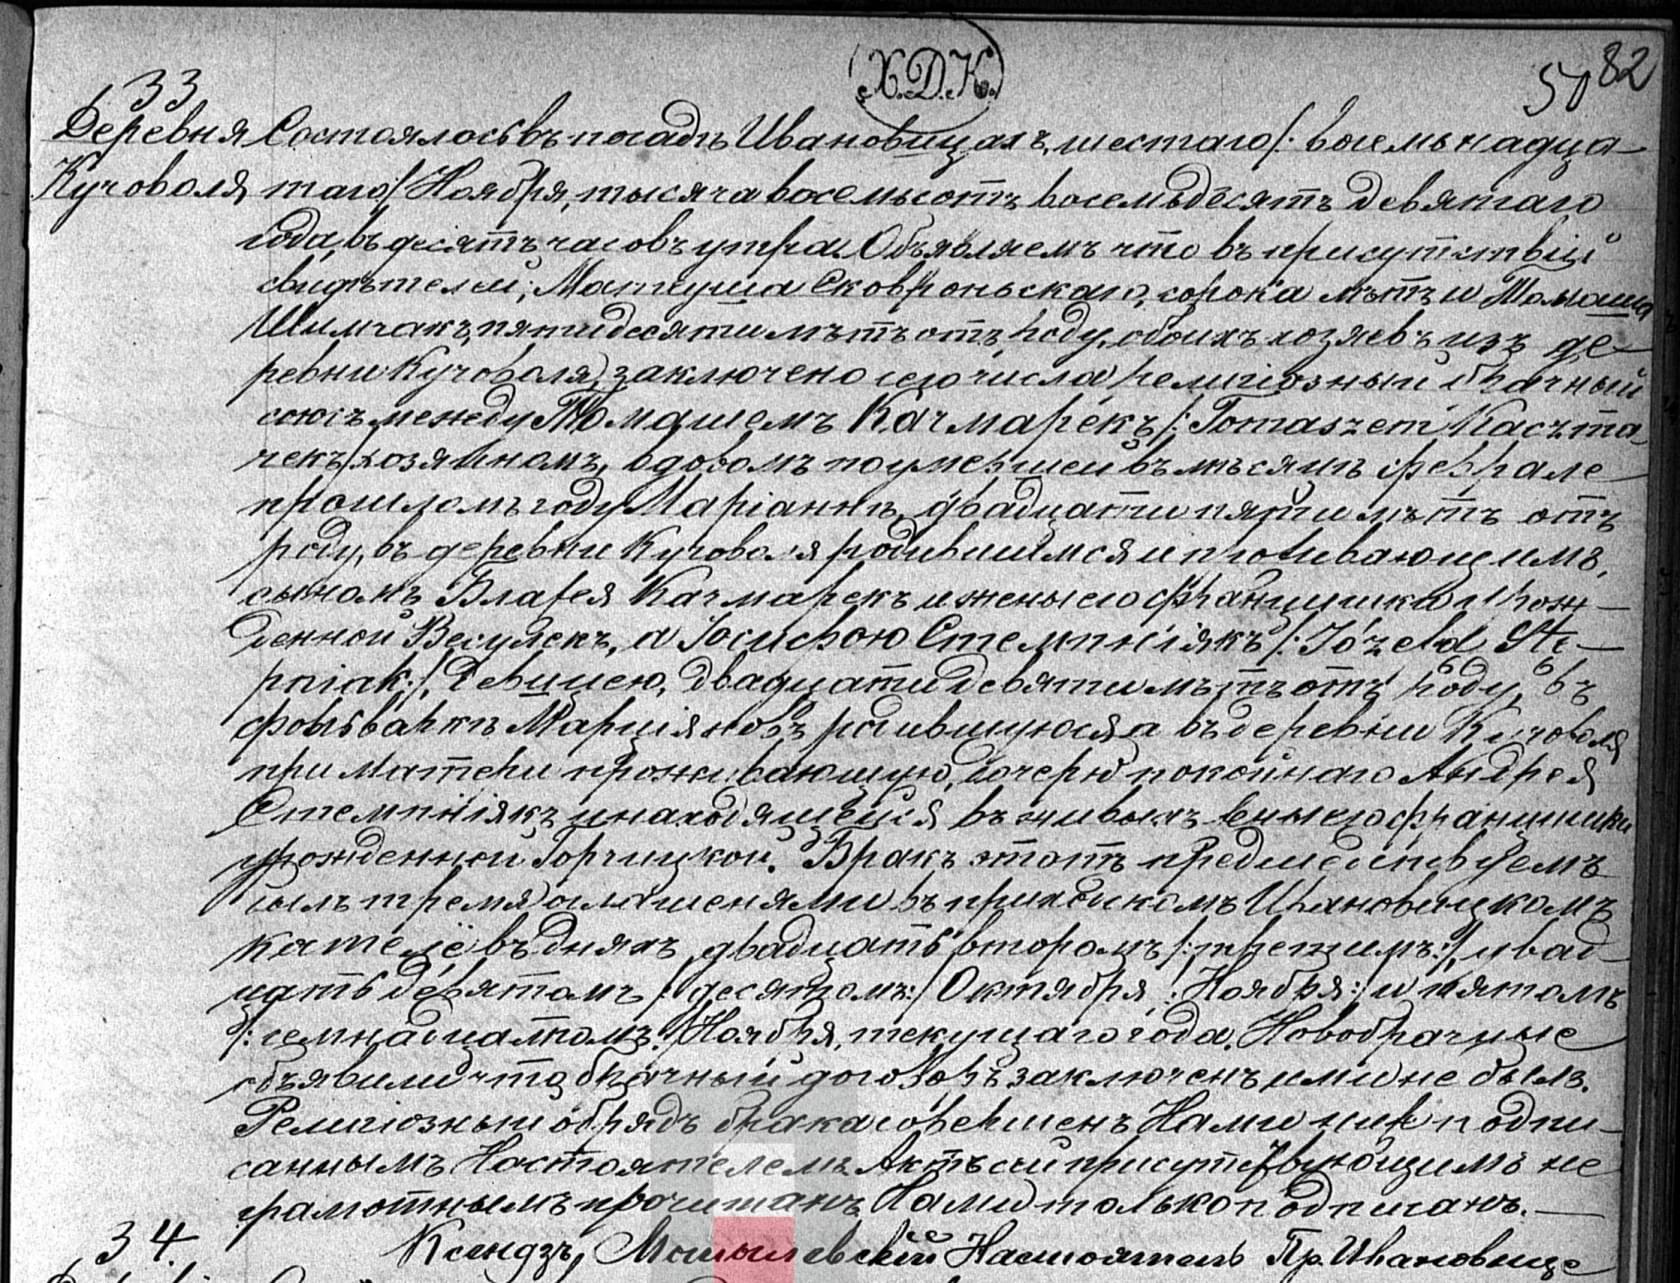 Х.Д.К.
50 82
33
Деревня Состоялось въ посадѣ Ивановицахъ, шестаго /: восемьнадца-
Кучоволя таго/ Ноября, тысяча восемьсотъ восемьдесятъ девятаго
года, въ десять часовъ утра. Объявляемъ что въ присутствіи
свидѣтелей, Матеуша Сковроньскаго, сорока лѣтъ и Томаша
Шымчакъ, пятидесяти лѣтъ отъ роду, обоихъ хозяевъ изъ де-
ревни Кучоволя, заключено сего числа религіозный брачный
союзъ между Томашемъ Качмарекъ /: Tomaszem Kaczma-
rek:/ хозяиномъ, вдовомъ по умершей въ мѣсяцѣ феврале
прошломъ году Маріаннѣ, двадцати пяти лѣтъ отъ
роду, въ деревни Кучоволя родившимся и проживающимъ,
сыномъ Блажея Качмарекъ и жены его Францишки рож-
денной Весулекъ, а Іосифою Стемпніякъ /: Józefa Stę-
pniak:/, Девицею, двадцати девяти лѣтъ отъ роду, въ
фольваркѣ Марціяновъ родившуюся а въ деревни Кучоволя
при матери проживающую, дочерю покойнаго Андрея
Стемпніякъ и находящейся въ живыхъ жены его Францишки
урожденной Горчицкой. Бракъ этотъ предшедствуемъ
былъ тремя оглашенями въ приходскомъ Ивановицкомъ
костелѣ въ дняхъ, двадцать второмъ /: третьимъ:/, двад-
цать девятомъ /: десятомъ:/ Октября /: Ноября:/ и пятомъ
/: семнадцатомъ:/ Ноября, текущаго года. Новобрачные
объявили что брачный договоръ заключенъ ими не былъ.
Религіозный обрядъ брака совершенъ Нами ниже подпи-
саннымъ Настоятелемъ. Актъ сей присутствующимъ не
грамотнымъ прочитанъ, Нами только подписанъ.—
34. Ксендзъ, Настоятель Пр. Ивановице